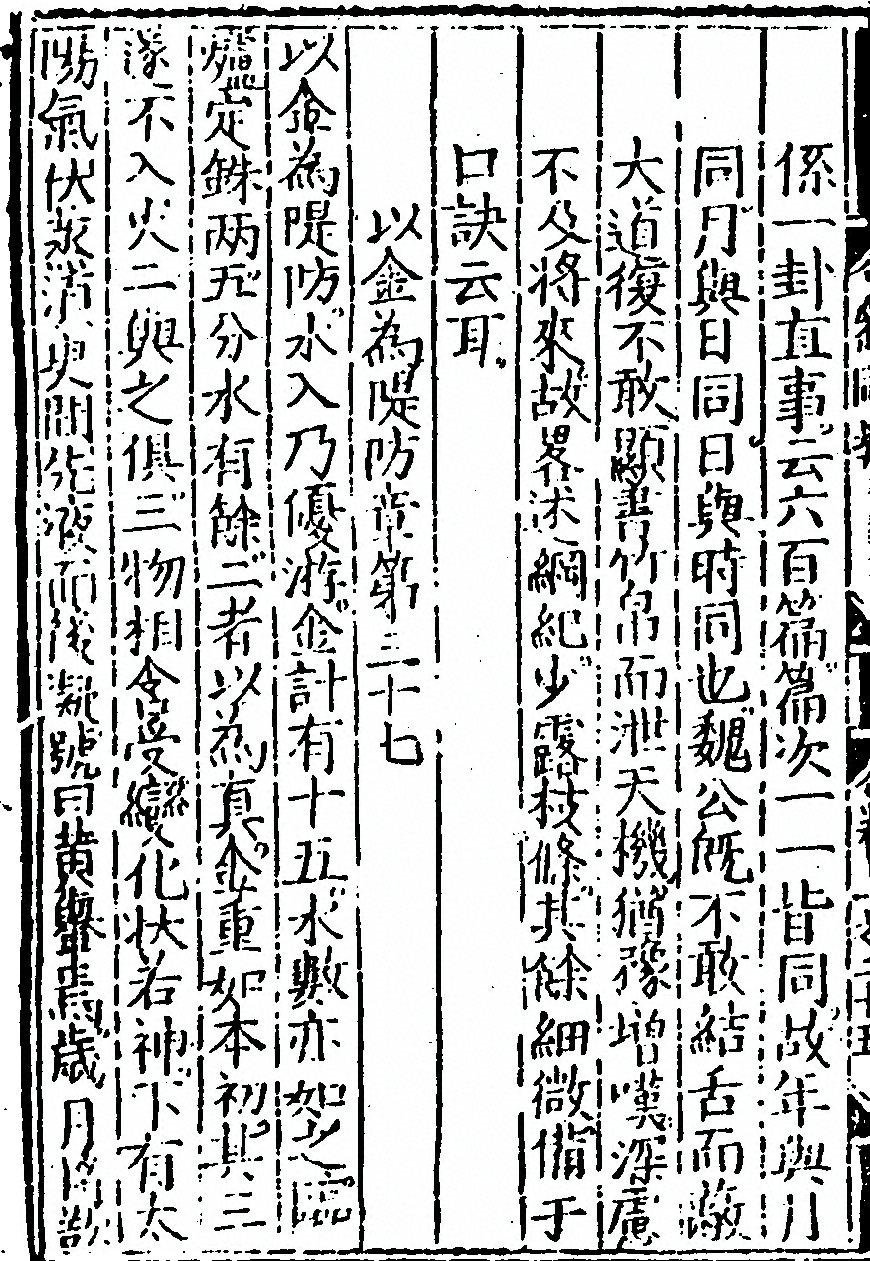 係一卦直事云六百篇篇次一一皆同故年與月
同月與日同日與時同也魏公既不敢結舌而蔽
大道復不敢顯書竹帛而泄天機猶豫增嘆深慮
不及將來故畧述綱紀少露枝條其餘細微備于
口訣云耳
以金為隄防章第三十七
以金為隄防水入乃優游金計有十五水數亦如之臨
爐定銖两五分水有餘二者以為真金重如本初其三
遂不入火二與之俱三物相含受變化狀若神下有太
陽氣伏蒸須臾間先液而後凝號曰黃轝焉歲月將欲